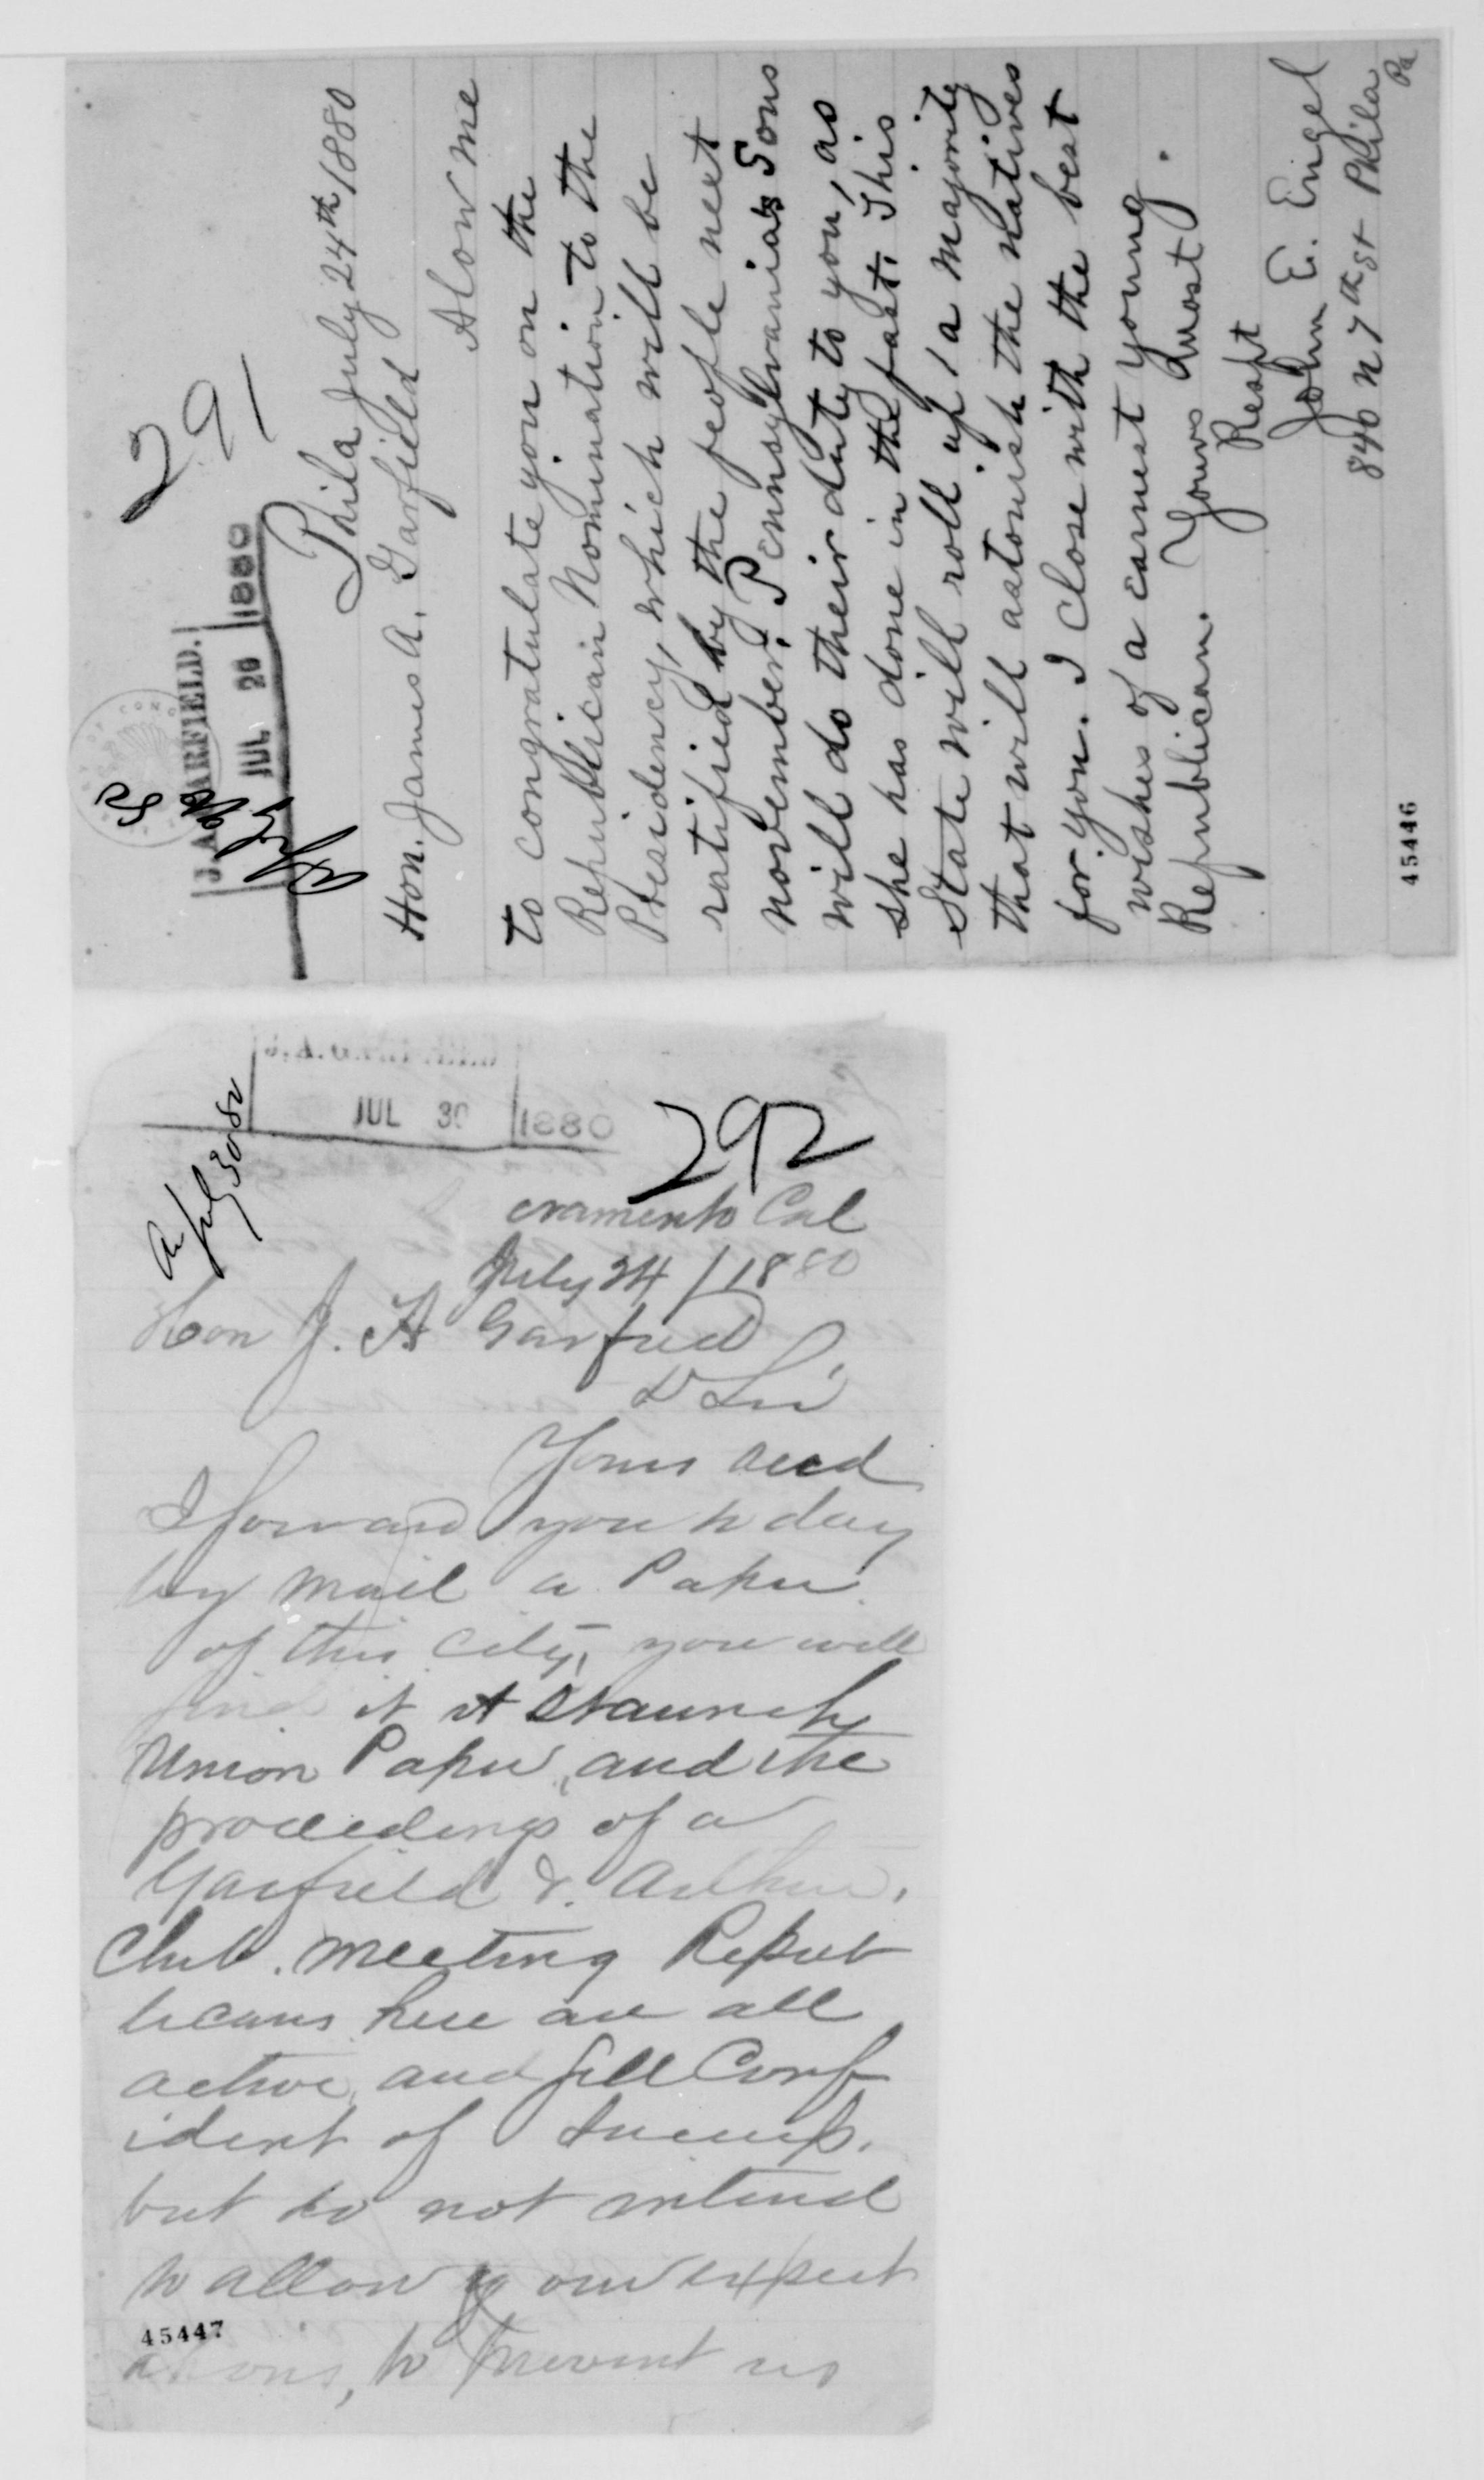 291
J. A. GARFIELD.
JUL 26 1880
Phila July 24th 1880
Hon. James A. Garfield
Alow me
to congratulate you on the
Republican Nomination to the
Presidency, which will be
ratified by the people next
november. Pennsylvanias Sons
will do their duty to you, as
she has done in the past. This
State will roll up a majority
that will astonish the natives
for you. I close with the best
wishes of a earnest young
Republican. Yours most
Respt
John E. Engel
840 N 7th St Phila
Pa
45446
J. A. GARFIELD
JUL 30 1880
292
July 30 80
cramento Cal
July 24 / 1880
Hon J. A Garfield
D Sir
Yours recd
I forward you to day
by mail a Paper
of this City, you will
find it A Staunch
Union Paper, and the
proceedings of a
Garfield & Arthur,
Club. meeting Repub
licans here are all
active, and fill Conf
ident of Success.
but do not intend
to allow our expect
ations, to prevent us
45447